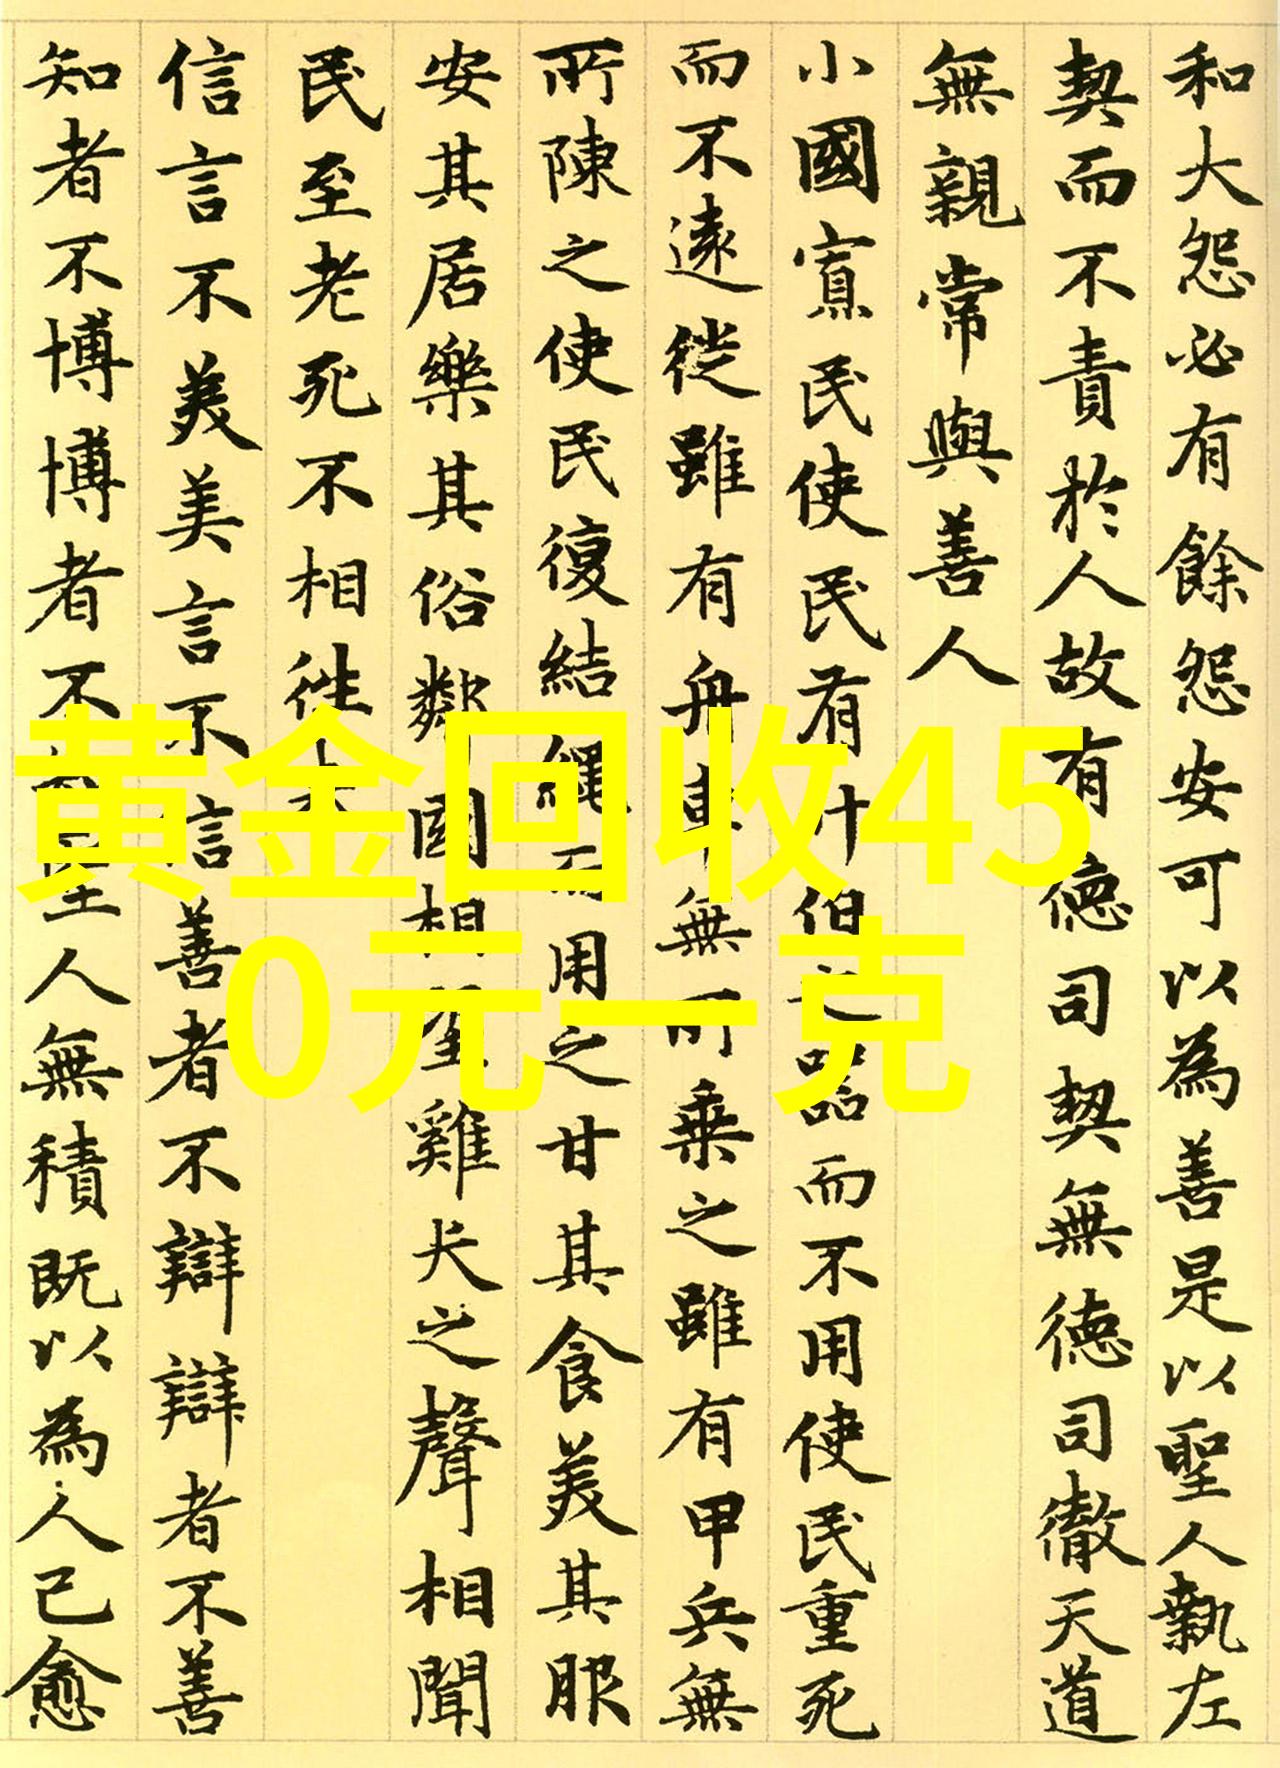 和大怨必有餘怨安可以為善是以聖人執左
契而不責於人故有德司契無德司徹天道
無親常與善人
小國寡民使民有什伯之器而不用使民重死
而不遠徙雖有舟車無所乗之雖有甲兵無
所陳之使民復結繩而用之甘其食美其服
安其居樂其俗鄰國相望雞犬之聲相聞
民至老死不相往来
信言不美美言不信善者不辯辯者不善
知者不博博者不知聖人無積既以為人己愈
黄金回收45
0元一克